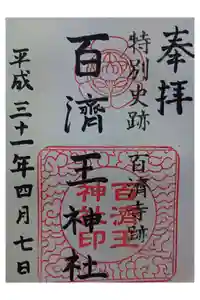 奉拝
特別史跡 百済寺跡
百濟王神社
平成三十一年四月七日
百濟王
神社印